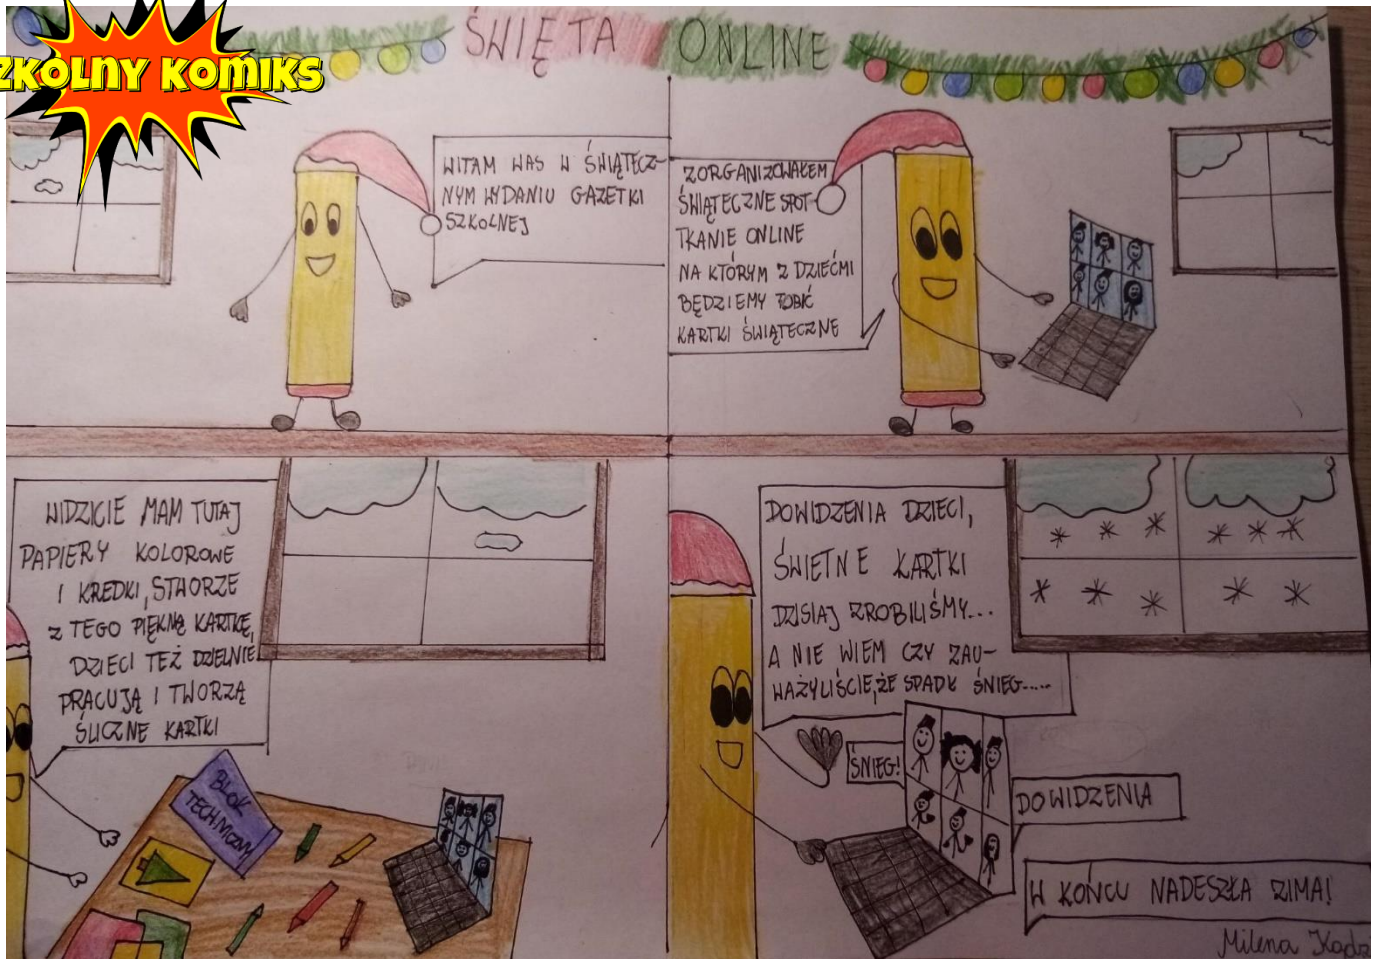 ZKOLNY KOMIKS
ŚWIĘTA ONLINE
WITAM WAS W ŚWIĄTECZ-
NYM WYDANIU GAZETKI
SZKOLNEJ
ZORGANIZOWAŁEM
ŚWIĄTECZNE SPOT-
TKANIE ONLINE
NA KTÓRYM Z DZIEĆMI
BĘDZIEMY ROBIĆ
KARTKI ŚWIĄTECZNE
WIDZICIE MAM TUTAJ
PAPIERY KOLOROWE
I KREDKI, STWORZE
Z TEGO PIĘKNĄ KARTKĘ,
DZIECI TEŻ DZIELNIE
PRACUJĄ I TWORZĄ
ŚLICZNE KARTKI
BLOK
TECHNICZNY
DOWIDZENIA DZIECI,
ŚWIETNE KARTKI
DZISIAJ ZROBILIŚMY...
A NIE WIEM CZY ZAU-
WAŻYLIŚCIE, ŻE SPADŁ ŚNIEG.....
ŚNIEG!
DOWIDZENIA
W KOŃCU NADESZŁA ZIMA!
Milena